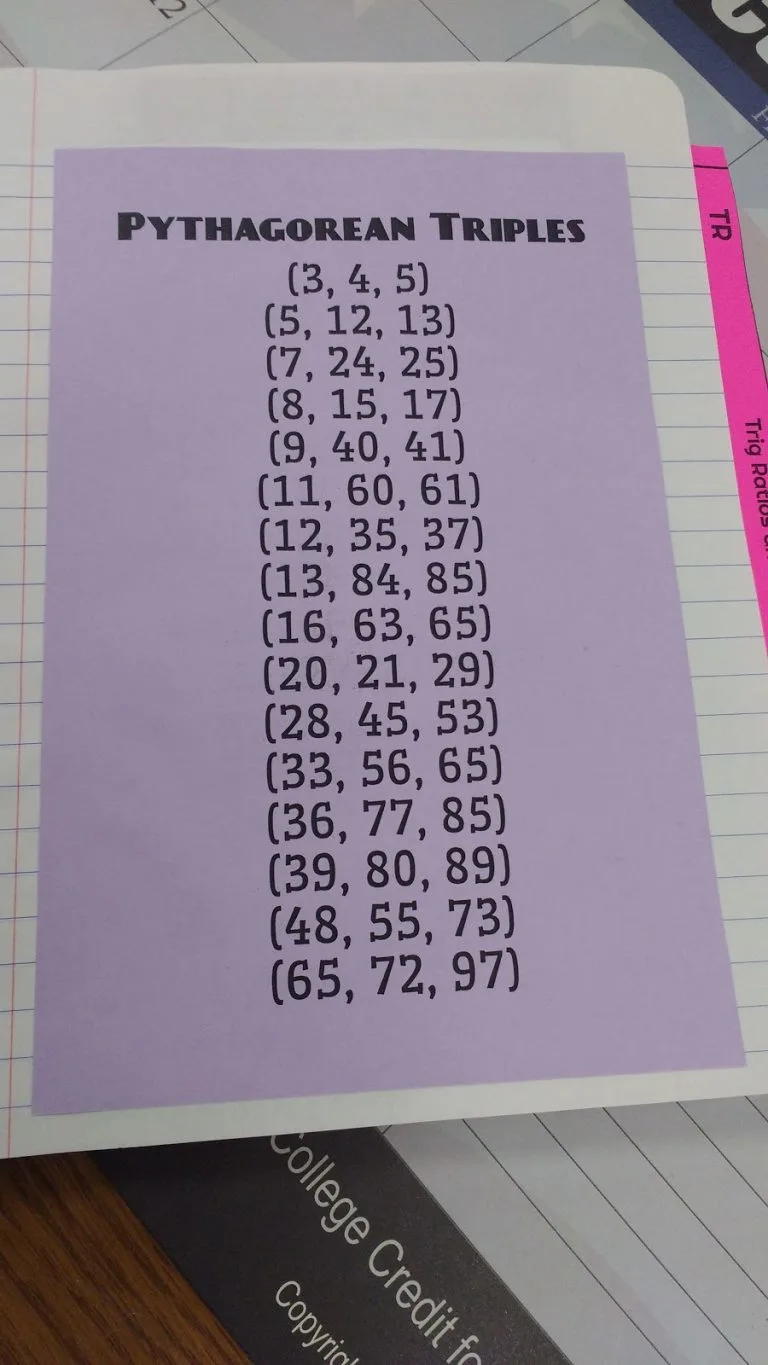 12
PYTHAGOREAN TRIPLES
(3, 4, 5)
(5, 12, 13)
(7, 24, 25)
(8, 15, 17)
(9, 40, 41)
(11, 60, 61)
(12, 35, 37)
(13, 84, 85)
(16, 63, 65)
(20, 21, 29)
(28, 45, 53)
(33, 56, 65)
(36, 77, 85)
(39, 80, 89)
(48, 55, 73)
(65, 72, 97)
TR
Trig Ratios
College Credit